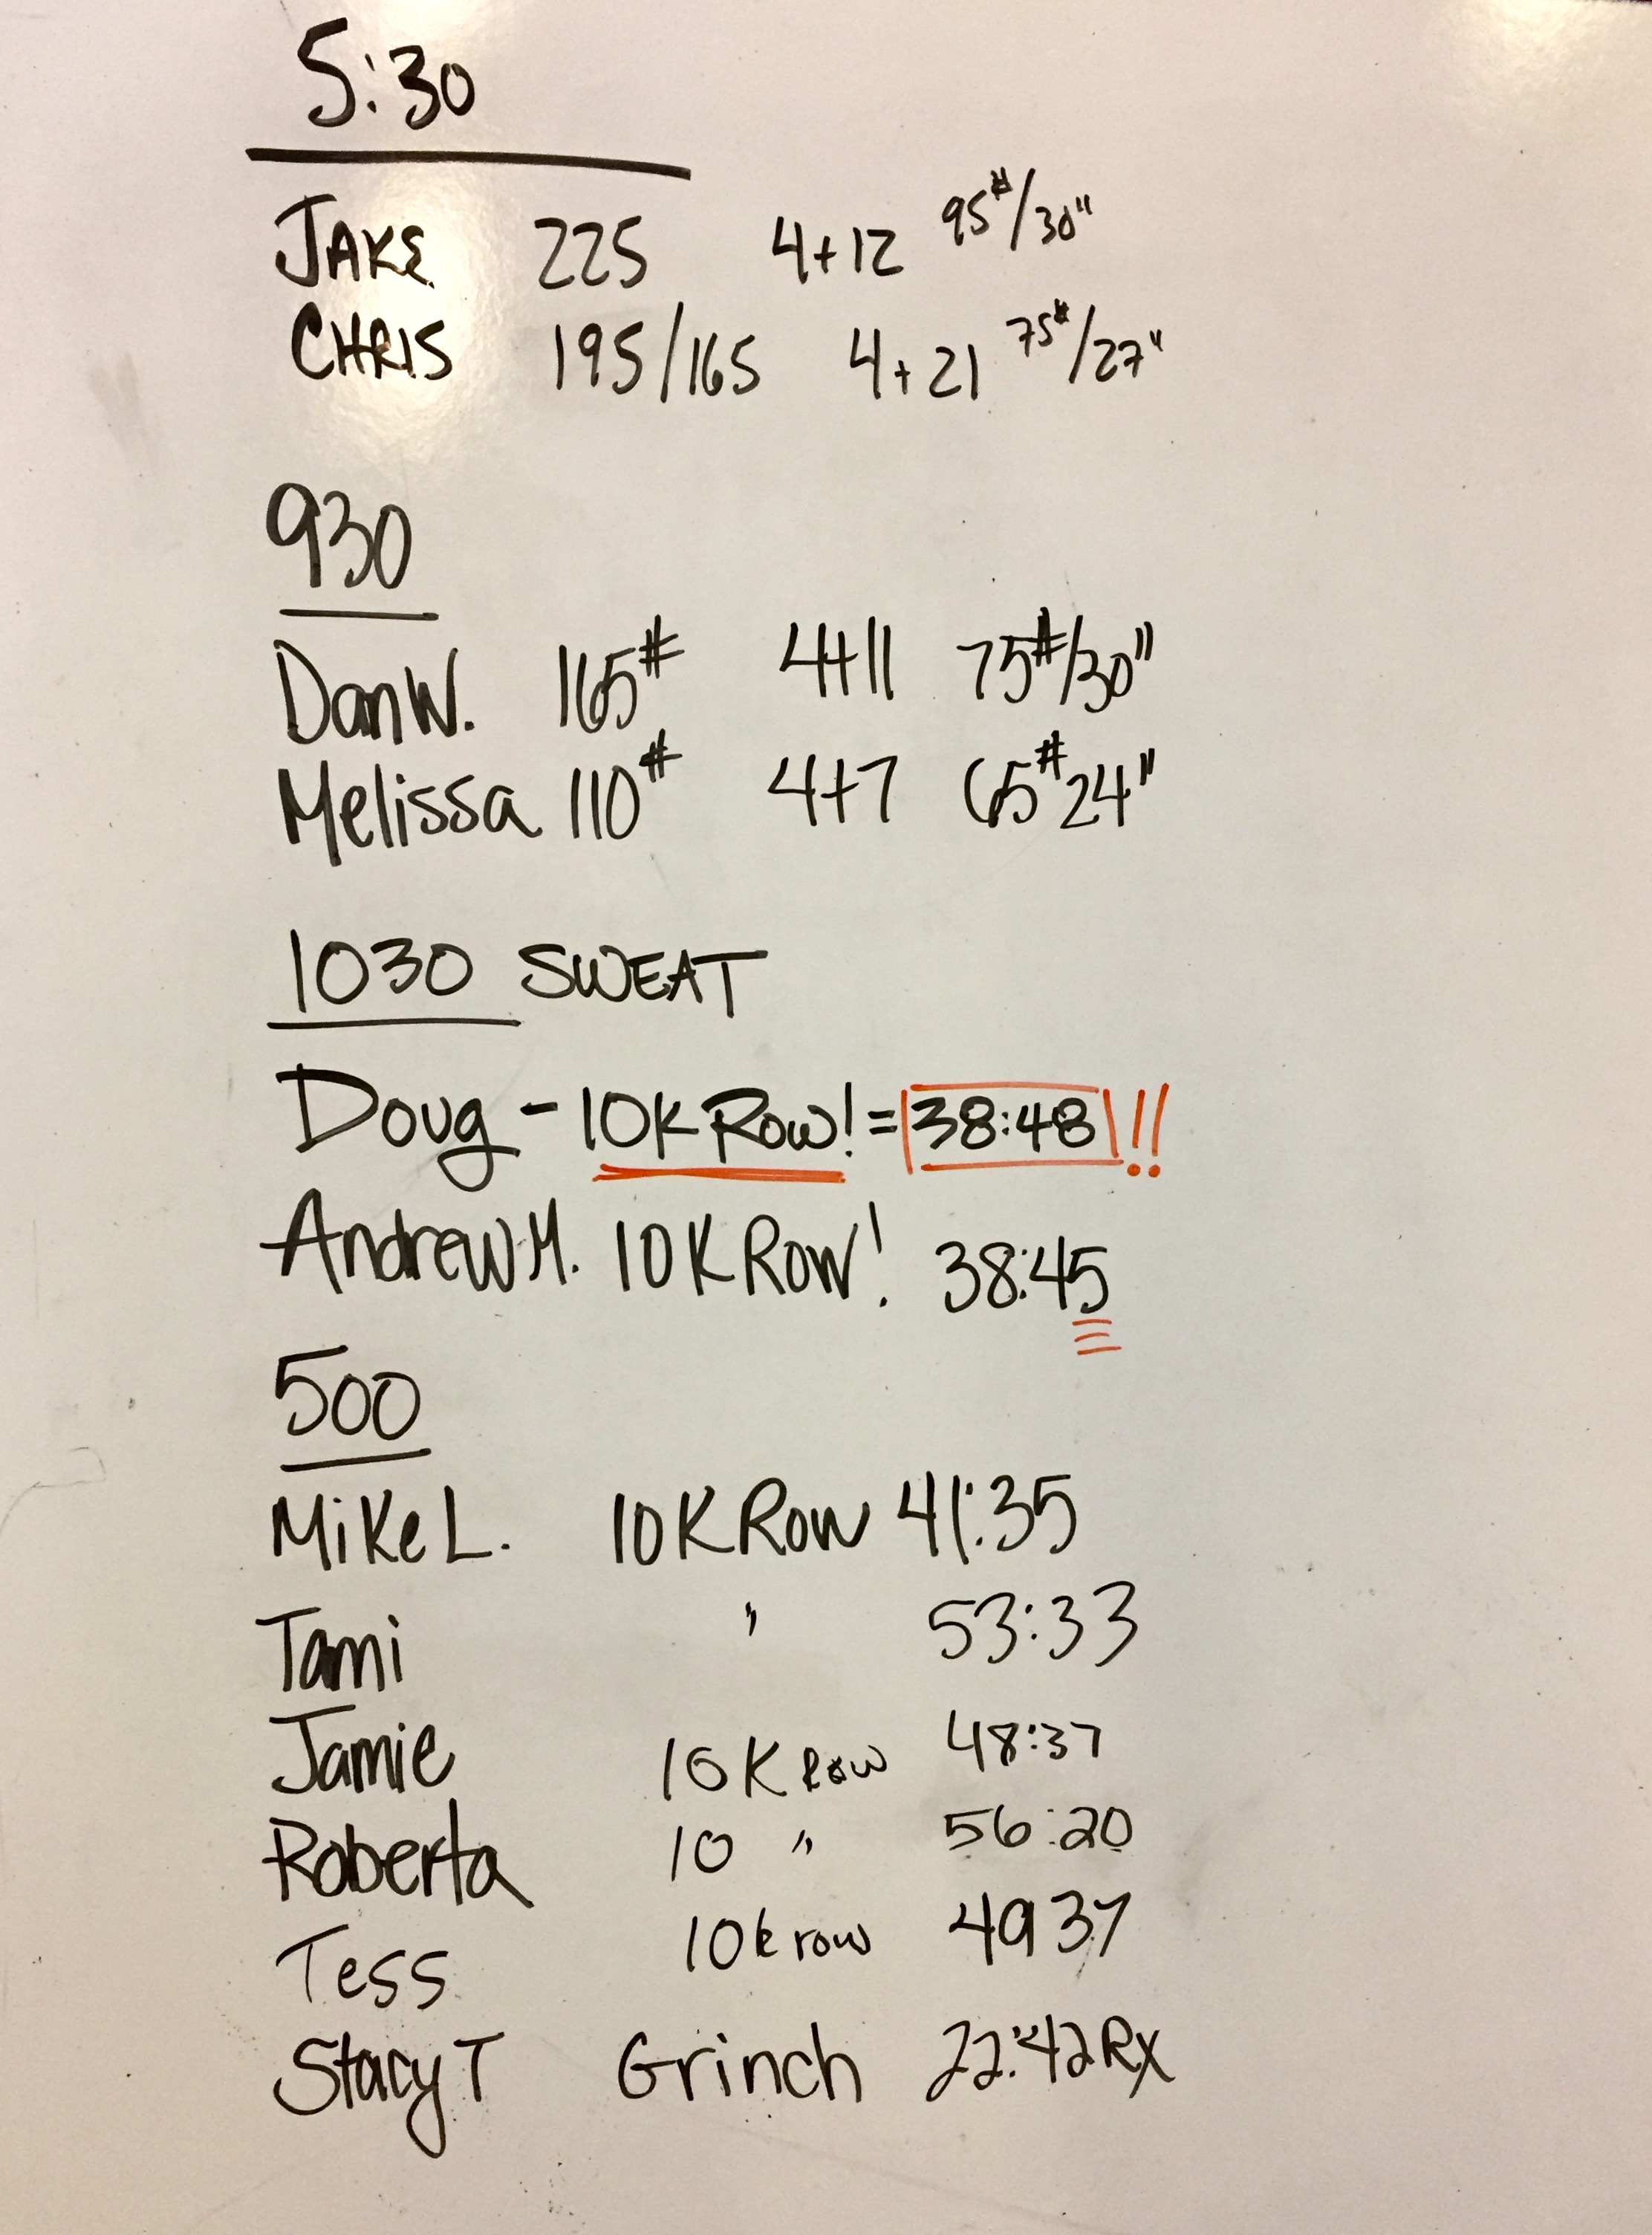 5:30
JAKE 225 4+12 95#/30"
CHRIS 195/165 4+21 75#/27"
930
Dan W. 165# 4+11 75#/30"
Melissa 110# 4+7 65# 24"
1030 SWEAT
Doug - 10K Row! = 38:48 !!
Andrew M. 10K Row! 38:45
500
Mike L. 10K Row 41:35
Tami " 53:33
Jamie 10K Row 48:37
Roberta 10 " 56:20
Tess 10k row 49 37
Stacy T Grinch 22:42 Rx